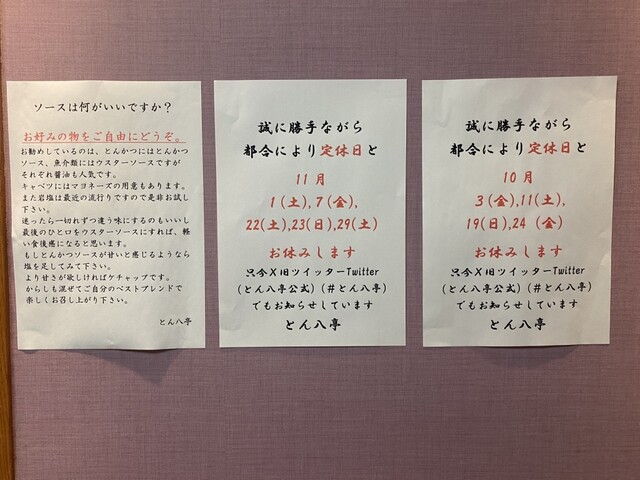 ソースは何がいいですか？
お好みの物をご自由にどうぞ。
お勧めしているのは、とんかつにはとんかつ
ソース、魚介類にはウスターソースですが
それぞれ醤油も人気です。
キャベツにはマヨネーズの用意もあります。
また岩塩は最近の流行りですので是非お試し
下さい。
迷ったら一切れずつ違う味にするのもいいし
最後のひと口をウスターソースにすれば、軽
い食後感になると思います。
もしとんかつソースが甘いと感じるようなら
塩を足してみて下さい。
より甘さが欲しければケチャップです。
からしも混ぜてご自分のベストブレンドで
楽しくお召し上がり下さい。
とん八亭
誠に勝手ながら
都合により定休日と
11月
1(土),7(金),
22(土),23(日),29(土)
お休みします
只今X旧ツイッターTwitter
(とん八亭公式)(#とん八亭)
でもお知らせしています
とん八亭
誠に勝手ながら
都合により定休日と
10月
3(金),11(土),
19(日),24(金)
お休みします
只今X旧ツイッターTwitter
(とん八亭公式)(#とん八亭)
でもお知らせしています
とん八亭